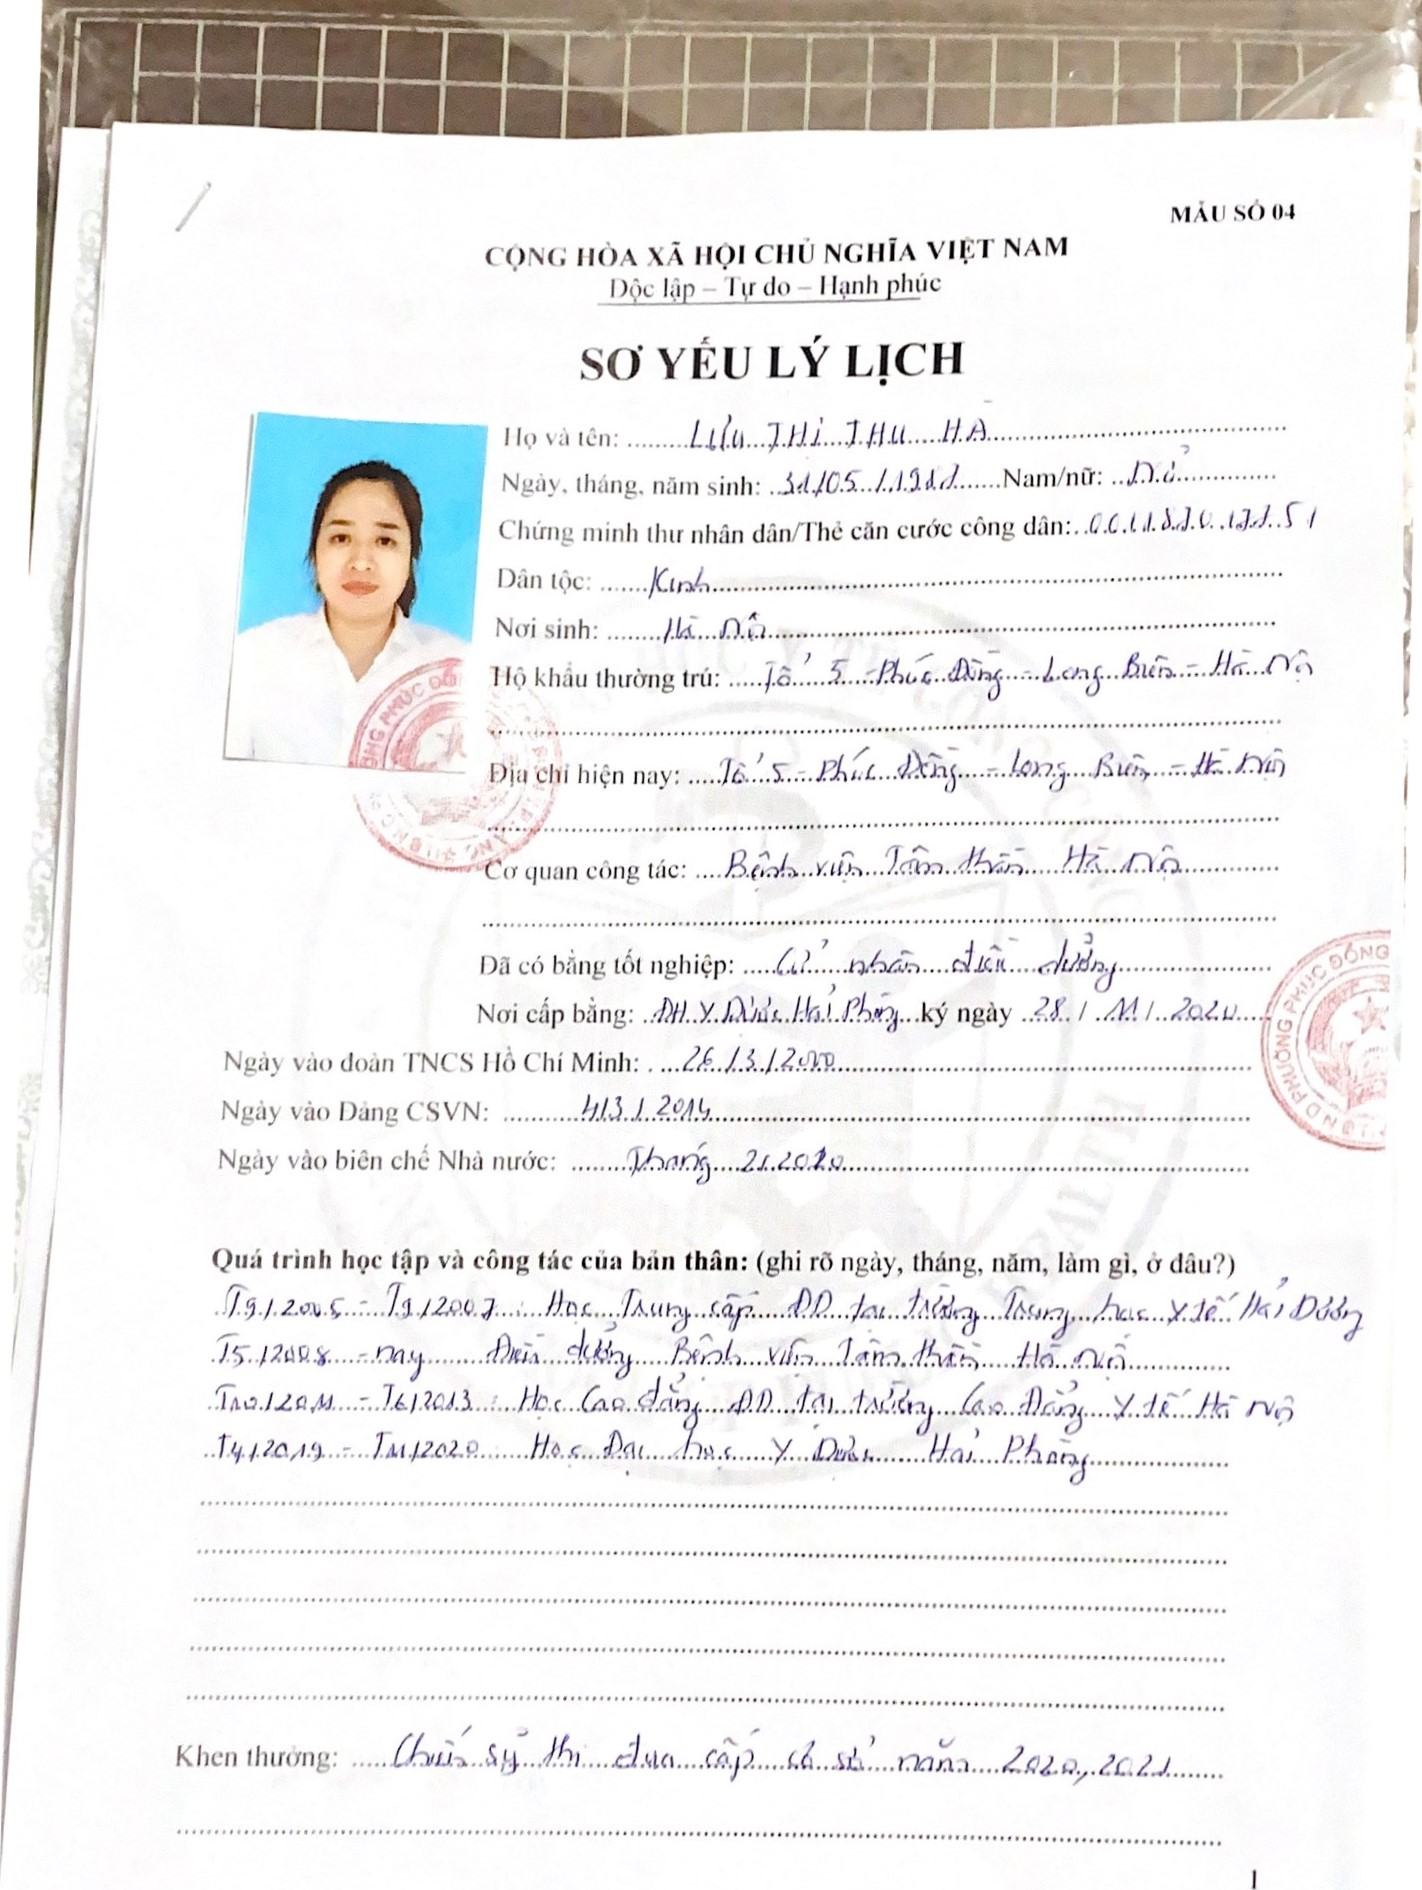 MẪU SỐ 04
CỘNG HÒA XÃ HỘI CHỦ NGHĨA VIỆT NAM
Độc lập – Tự do – Hạnh phúc
SƠ YẾU LÝ LỊCH
Họ và tên: LƯU THỊ THU HÀ
Ngày, tháng, năm sinh: 31/05/ Nam/nữ: Nữ
Chứng minh thư nhân dân/Thẻ căn cước công dân:
Dân tộc: Kinh
Nơi sinh: Hà Nội
Hộ khẩu thường trú: Tổ 5 - Phúc Đồng - Long Biên - Hà Nội
Địa chỉ hiện nay: Tổ 5 - Phúc Đồng - Long Biên - Hà Nội
Cơ quan công tác: Bệnh viện Tâm thần Hà Nội
Đã có bằng tốt nghiệp: Cử nhân điều dưỡng
Nơi cấp bằng: ĐH Y Dược Hải Phòng ký ngày 28/11/2020
Ngày vào đoàn TNCS Hồ Chí Minh: 26/3/2000
Ngày vào Đảng CSVN: 4/3/2014
Ngày vào biên chế Nhà nước: Tháng
Quá trình học tập và công tác của bản thân: (ghi rõ ngày, tháng, năm, làm gì, ở đâu?)
T9/2005 - T9/2007: Học Trung cấp ĐD tại trường Trung học Y tế Hải Dương
T5/2008 - nay Điều dưỡng Bệnh viện Tâm thần Hà Nội
T10/2011 - T6/2013: Học Cao đẳng ĐD tại trường Cao Đẳng Y tế Hà Nội
T4/2019 - T11/2020 Học Đại học Y Dược Hải Phòng
Khen thưởng: Chiến sỹ thi đua cấp cơ sở năm 2020, 2021
1